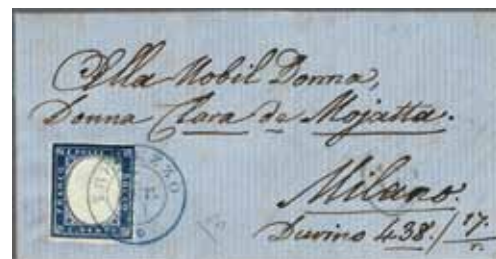 Alla Nobil Donna,
Donna Clara de Mojatta.
Milano.
438./17.